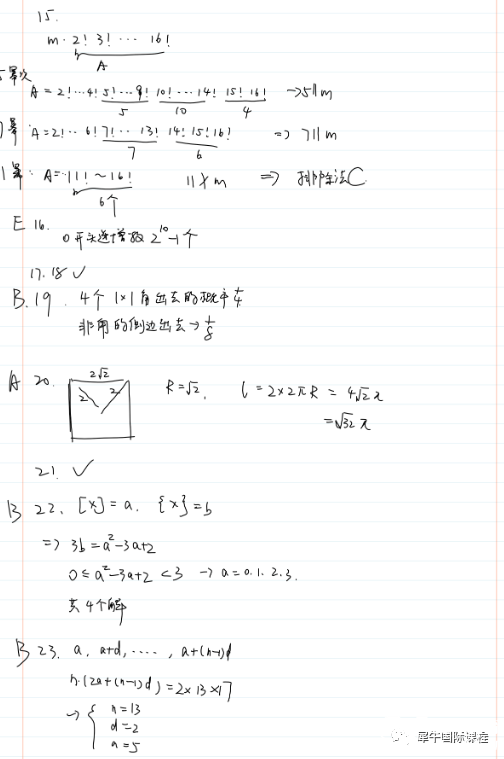 15.
m · 2! 3! ··· 16!
A
5幂次
A = 2!···4! 5!···9! 10!···14! 15! 16! → 5∥m
5 10 4
A = 2!·· 6! 7!··· 13! 14! 15! 16! ⇒ 7∥m
7 6
A = 11! ~ 16! 11∤m ⇒ 排除法C
6个
E 16.
0开头递增数 2^10-1个
17. 18 ✓
B. 19. 4个 1×1 角出去的概率 1/4
非角的侧边出去→ 1/8
A 20. 2√2 R = √2, l = 2×2πR = 4√2π
2 2 = √32 π
21. ✓
B 22. [x] = a. {x} = b
⇒ 3b = a²-3a+2
0 ≤ a²-3a+2 < 3 → a = 0. 1. 2. 3.
共4个解
B 23. a, a+d, ····, a+(n-1)d
n·(2a+(n-1)d) = 2×13×17
→ { n = 13
d = 2
a = 5
犀牛国际课程